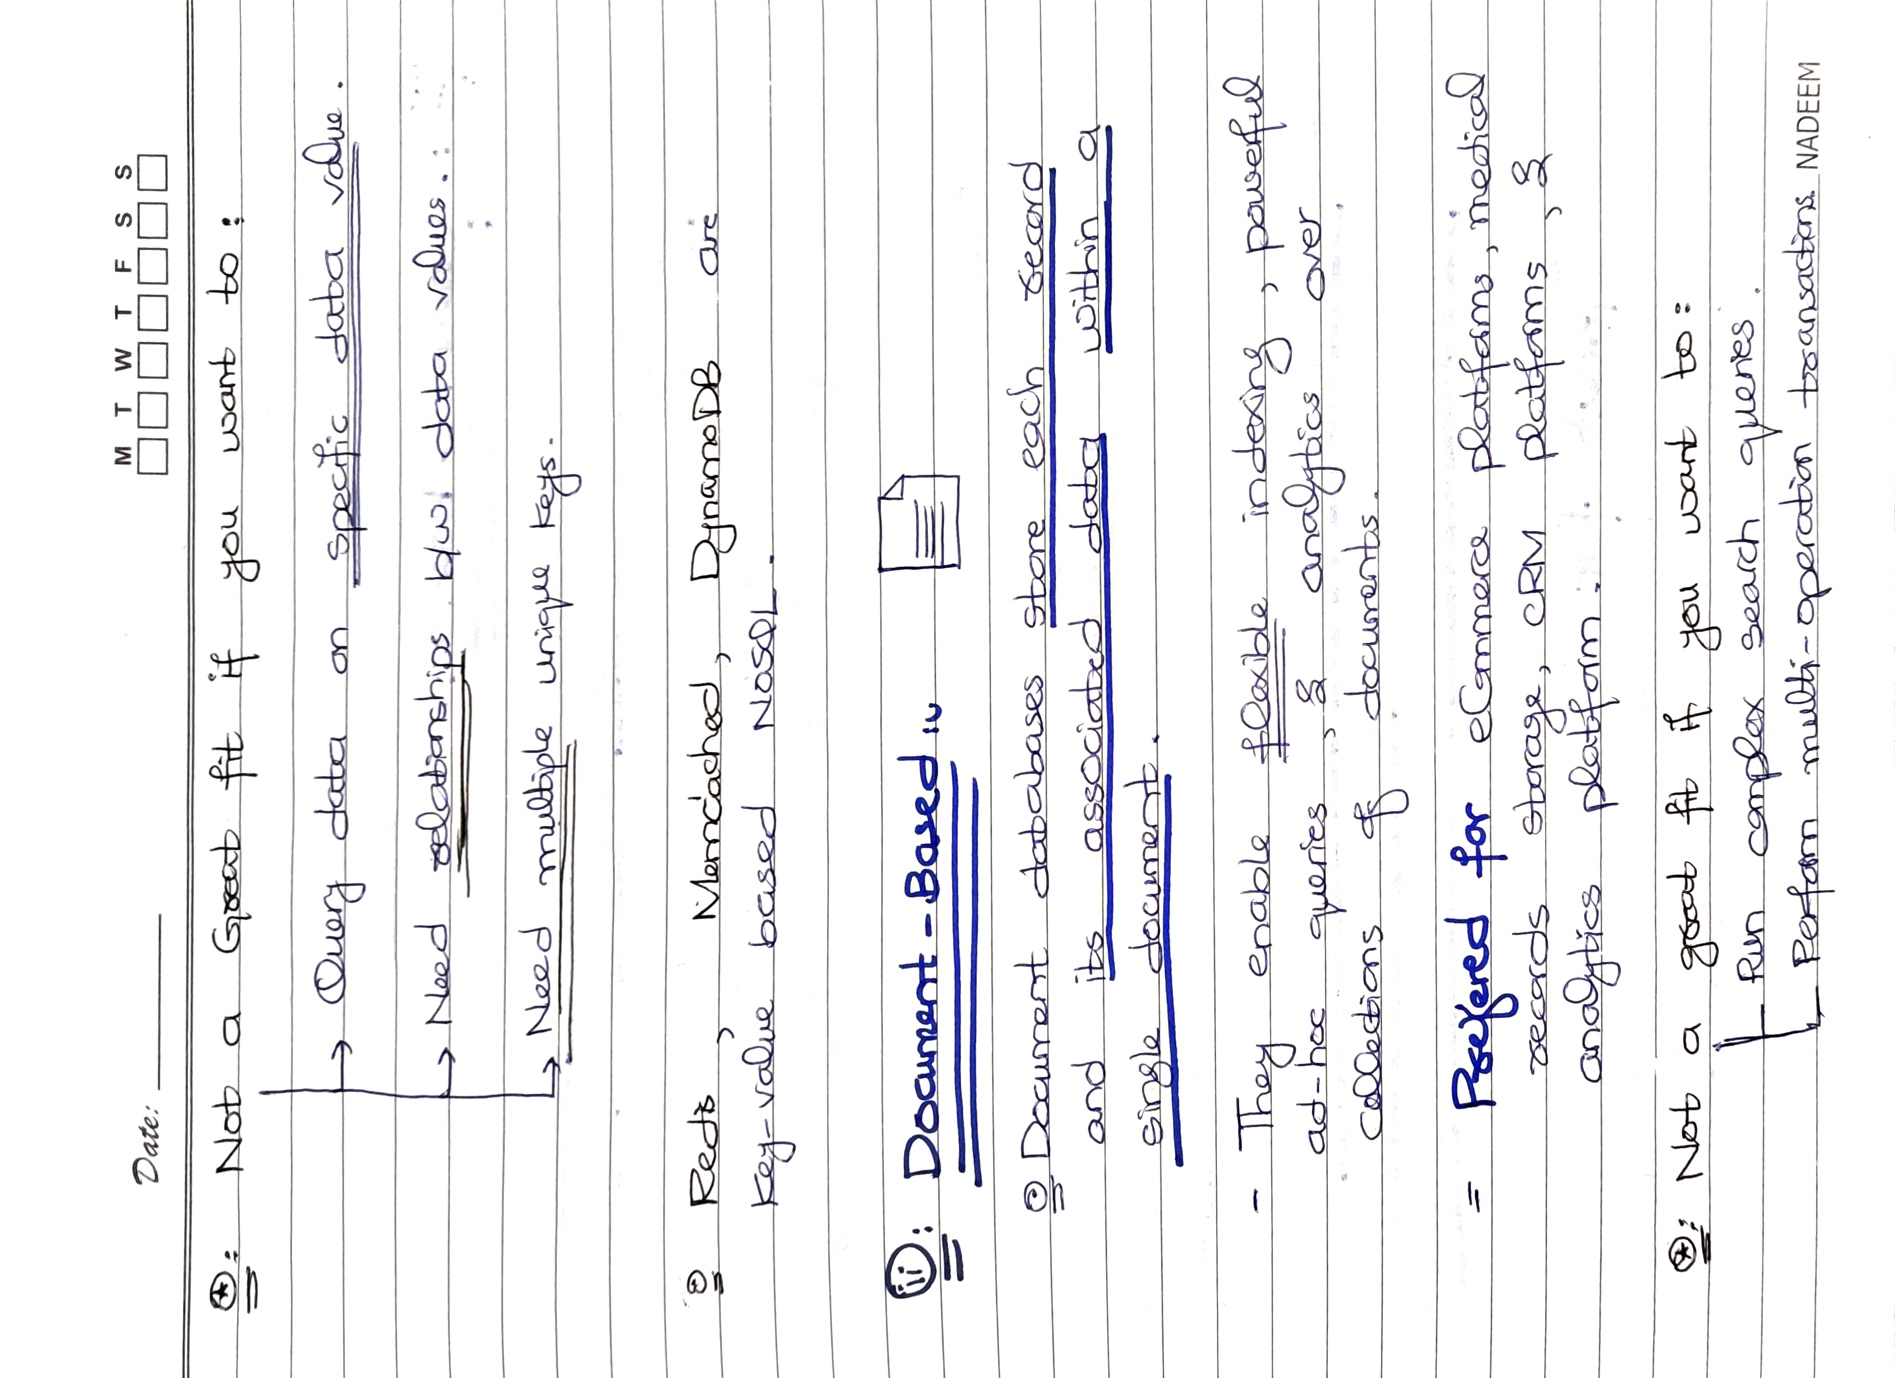 Date:
M T W T F S S
⊛: Not a Great fit if you want to:
→ Query data on specific data value.
→ Need relationships b/w data values.
→ Need multiple unique keys.
Redis, Memcached, DynamoDB are
Key-value based NoSQL.
(ii): Document-Based :
Document databases store each record
and its associated data within a
single document.
- They enable flexible indexing, powerful
ad-hoc queries, & analytics over
collections of documents.
= Preferred for eCommerce platforms, medical
records storage, CRM platforms, &
analytics platform.
⊛: Not a great fit if you want to:
Run complex search queries.
Perform multi-operation transactions.
NADEEM